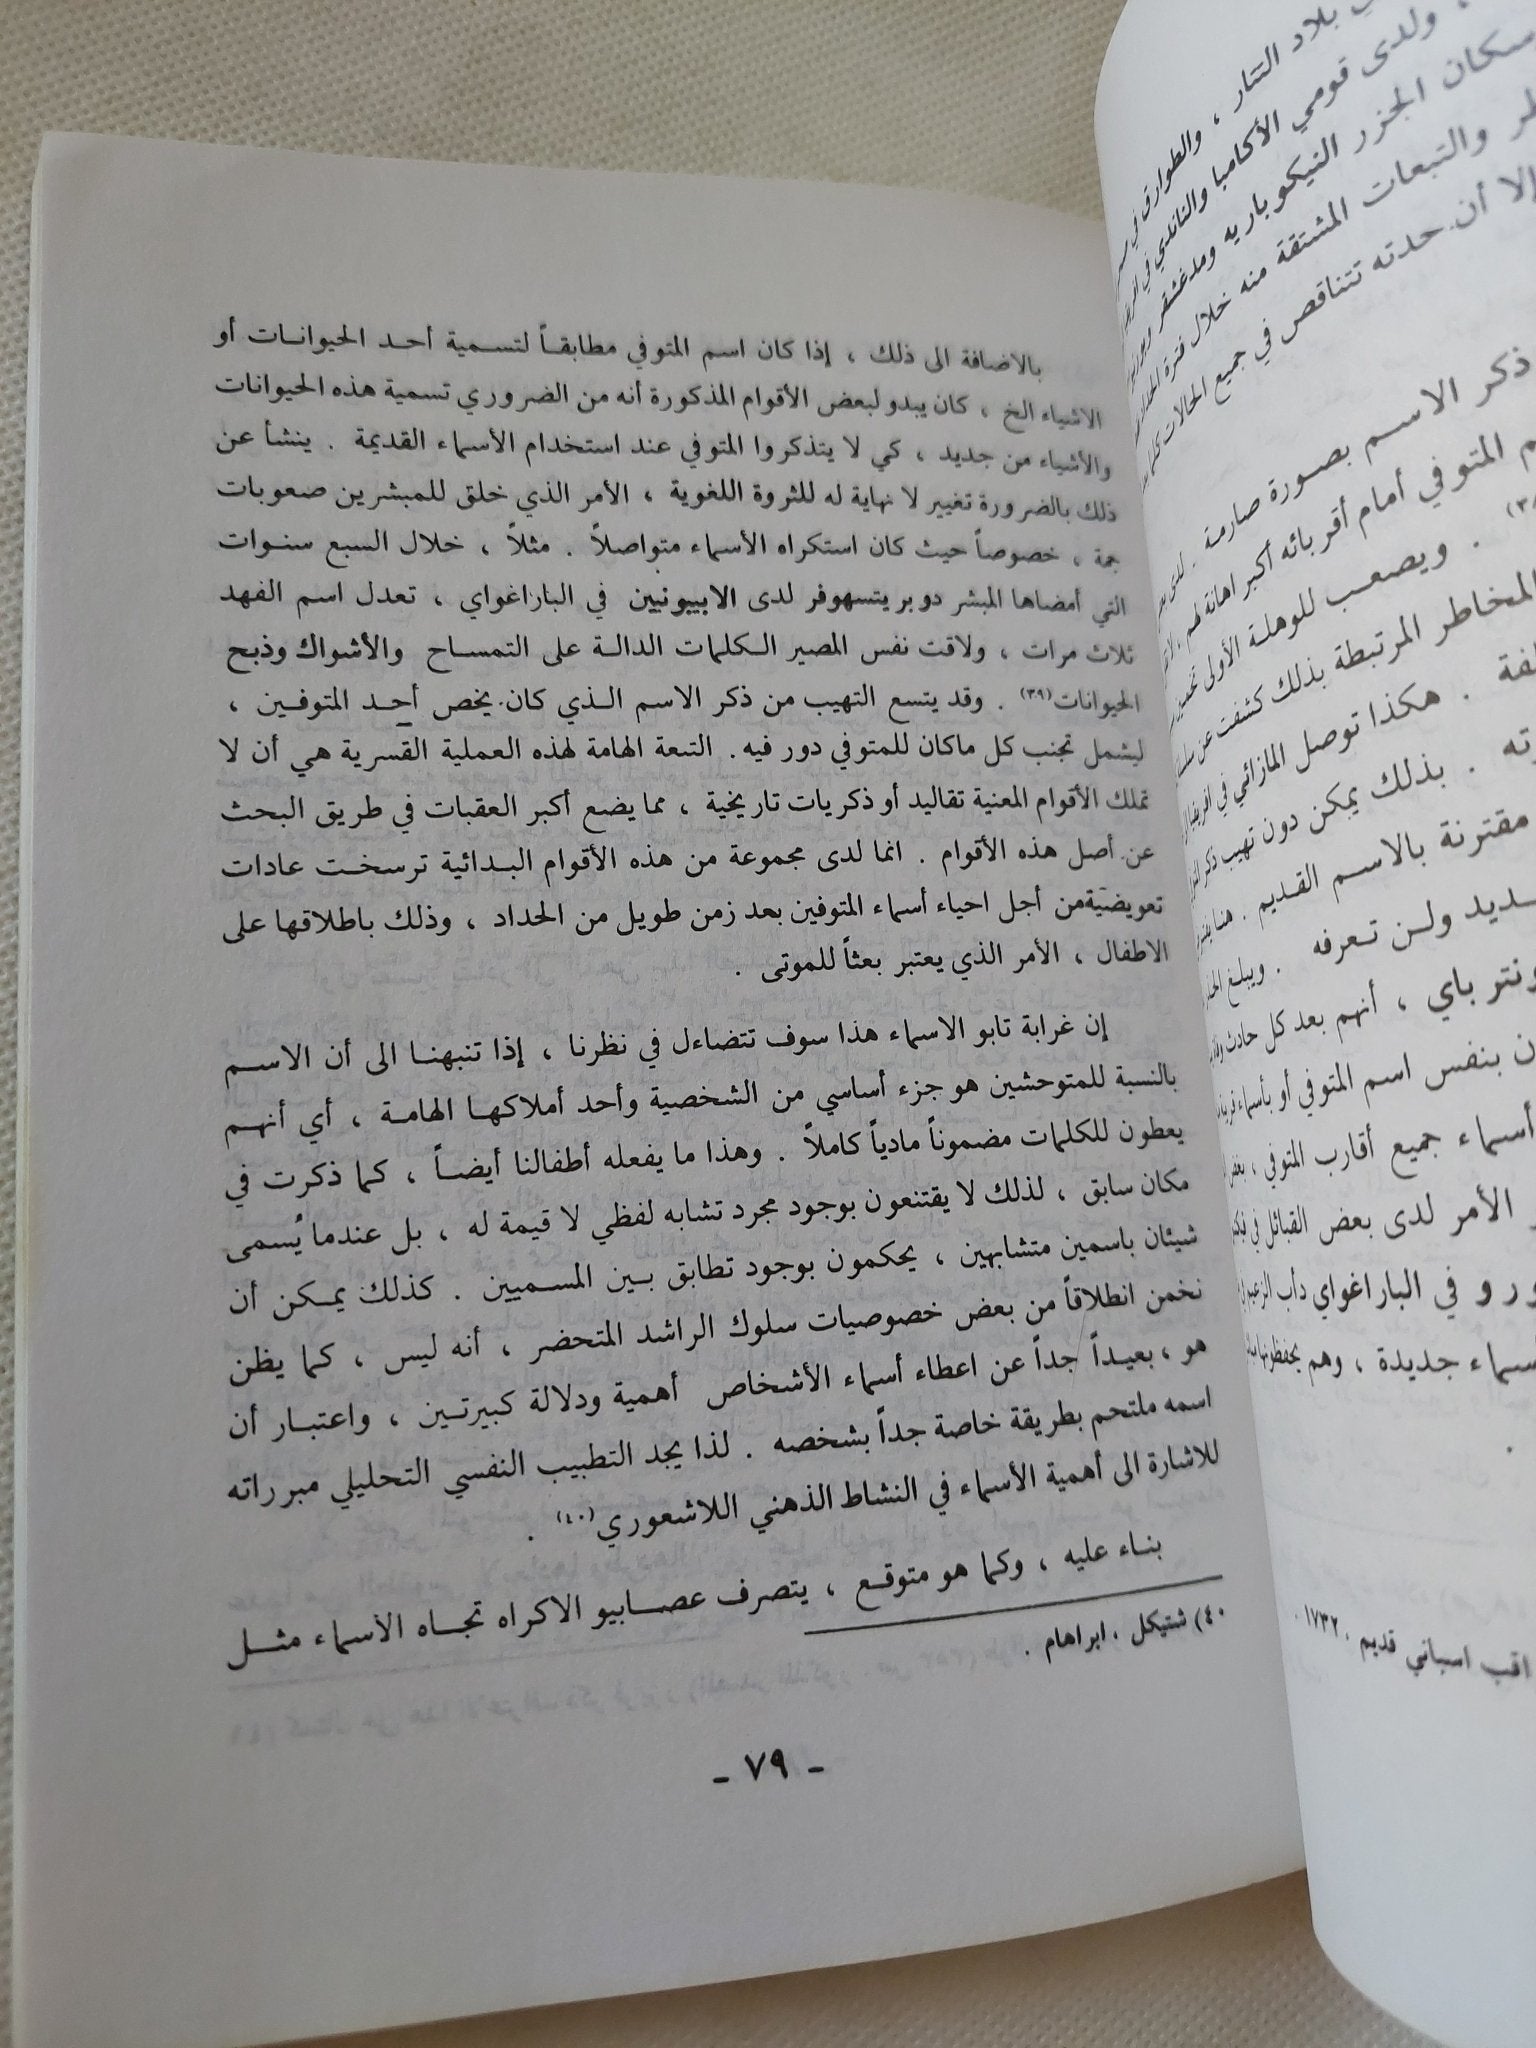 بلاد التتار ، والطوارق في
، ولدى قومي الأكامبا والناندي في
سكان الجزر النيكوباريه ومدغشقر
والتبعات المشتقة منه خلال فترة
إلا أن حدته تتناقص في جميع الحالات
ذكر الاسم بصورة صارمة .
المتوفي أمام أقربائه أكبر اهانة لهم
(٣٨
. ويصعب للوهلة الأولى
المخاطر المرتبطة بذلك كشفت عن
. هكذا توصل المازائي في
. بذلك يمكن دون تهيب ذكر
مقترنة بالاسم القديم . هنا
ولن تعرفه . ويبلغ
باي ، أنهم بعد كل حادث
بنفس اسم المتوفي أو بأسماء
أسماء جميع أقارب المتوفي ، بعض
الأمر لدى بعض القبائل في
في الباراغواي دأب الزعيم
جديدة ، وهم يحفظونها
.
اسباني قديم ، ١٧٣٢ .
بالاضافة الى ذلك ، إذا كان اسم المتوفي مطابقاً لتسمية أحد الحيوانات أو
الاشياء الخ ، كان يبدو لبعض الأقوام المذكورة أنه من الضروري تسمية هذه الحيوانات
والأشياء من جديد ، كي لا يتذكروا المتوفي عند استخدام الأسماء القديمة . ينشأ عن
ذلك بالضرورة تغيير لا نهاية له للثروة اللغوية ، الأمر الذي خلق للمبشرين صعوبات
جمة ، خصوصاً حيث كان استكراه الأسماء متواصلاً . مثلاً ، خلال السبع سنوات
التي أمضاها المبشر دوبريتسهوفر لدى الابيونيين في الباراغواي ، تعدل اسم الفهد
ثلاث مرات ، ولاقت نفس المصير الكلمات الدالة على التمساح والأشواك وذبح
الحيوانات(٣٩) . وقد يتسع التهيب من ذكر الاسم الذي كان يخص أحد المتوفين ،
ليشمل تجنب كل ماكان للمتوفي دور فيه. التبعة الهامة لهذه العملية القسرية هي أن لا
تملك الأقوام المعنية تقاليد أو ذكريات تاريخية ، مما يضع أكبر العقبات في طريق البحث
عن أصل هذه الأقوام . انما لدى مجموعة من هذه الأقوام البدائية ترسخت عادات
تعويضية من أجل احياء أسماء المتوفين بعد زمن طويل من الحداد ، وذلك باطلاقها على
الاطفال ، الأمر الذي يعتبر بعثاً للموتى .
إن غرابة تابو الاسماء هذا سوف تتضاءل في نظرنا ، إذا تنبهنا الى أن الاسم
بالنسبة للمتوحشين هو جزء أساسي من الشخصية وأحد أملاكها الهامة ، أي أنهم
يعطون للكلمات مضموناً مادياً كاملاً . وهذا ما يفعله أطفالنا أيضاً ، كما ذكرت في
مكان سابق ، لذلك لا يقتنعون بوجود مجرد تشابه لفظي لا قيمة له ، بل عندما يُسمى
شيئان باسمين متشابهين ، يحكمون بوجود تطابق بين المسميين . كذلك يمكن أن
نخمن انطلاقاً من بعض خصوصيات سلوك الراشد المتحضر ، أنه ليس ، كما يظن
هو ، بعيداً جداً عن اعطاء أسماء الأشخاص أهمية ودلالة كبيرتين ، واعتبار أن
اسمه ملتحم بطريقة خاصة جداً بشخصه . لذا يجد التطبيب النفسي التحليلي مبرراته
للاشارة الى أهمية الأسماء في النشاط الذهني اللاشعوري(٤٠) .
بناء عليه ، وكما هو متوقع ، يتصرف عصابيو الاكراه تجاه الأسماء مثل
٤٠) شتيكل ، ابراهام .
- ٧٩ -